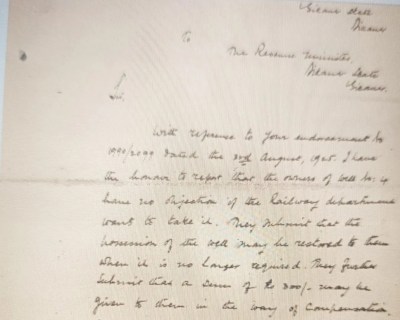 To
The Revenue Minister,
State
Sir,
With reference to your endorsement No
dated the 3rd August, 1925. I have
the honour to report that the owners of well No: 4
have no objection if the Railway department
want to take it. They submit that the
possession of the well may be restored to them
when it is no longer required. They further
submit that a sum of Rs 300/- may be
given to them in the way of Compensation.